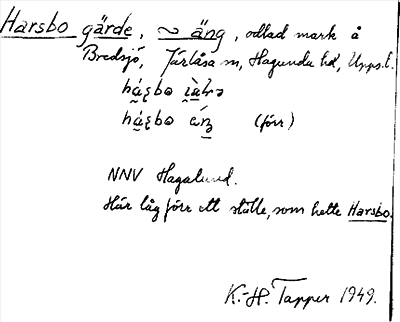 Harsbo gärde, ~ äng, odlad mark å
Bredsjö, Järlåsa sn, Hagunda hd, Upps. l.
(förr)
NNV Hagalund.
Här låg förr ett ställe, som hette Harsbo.
K.-H. Tapper 1949.